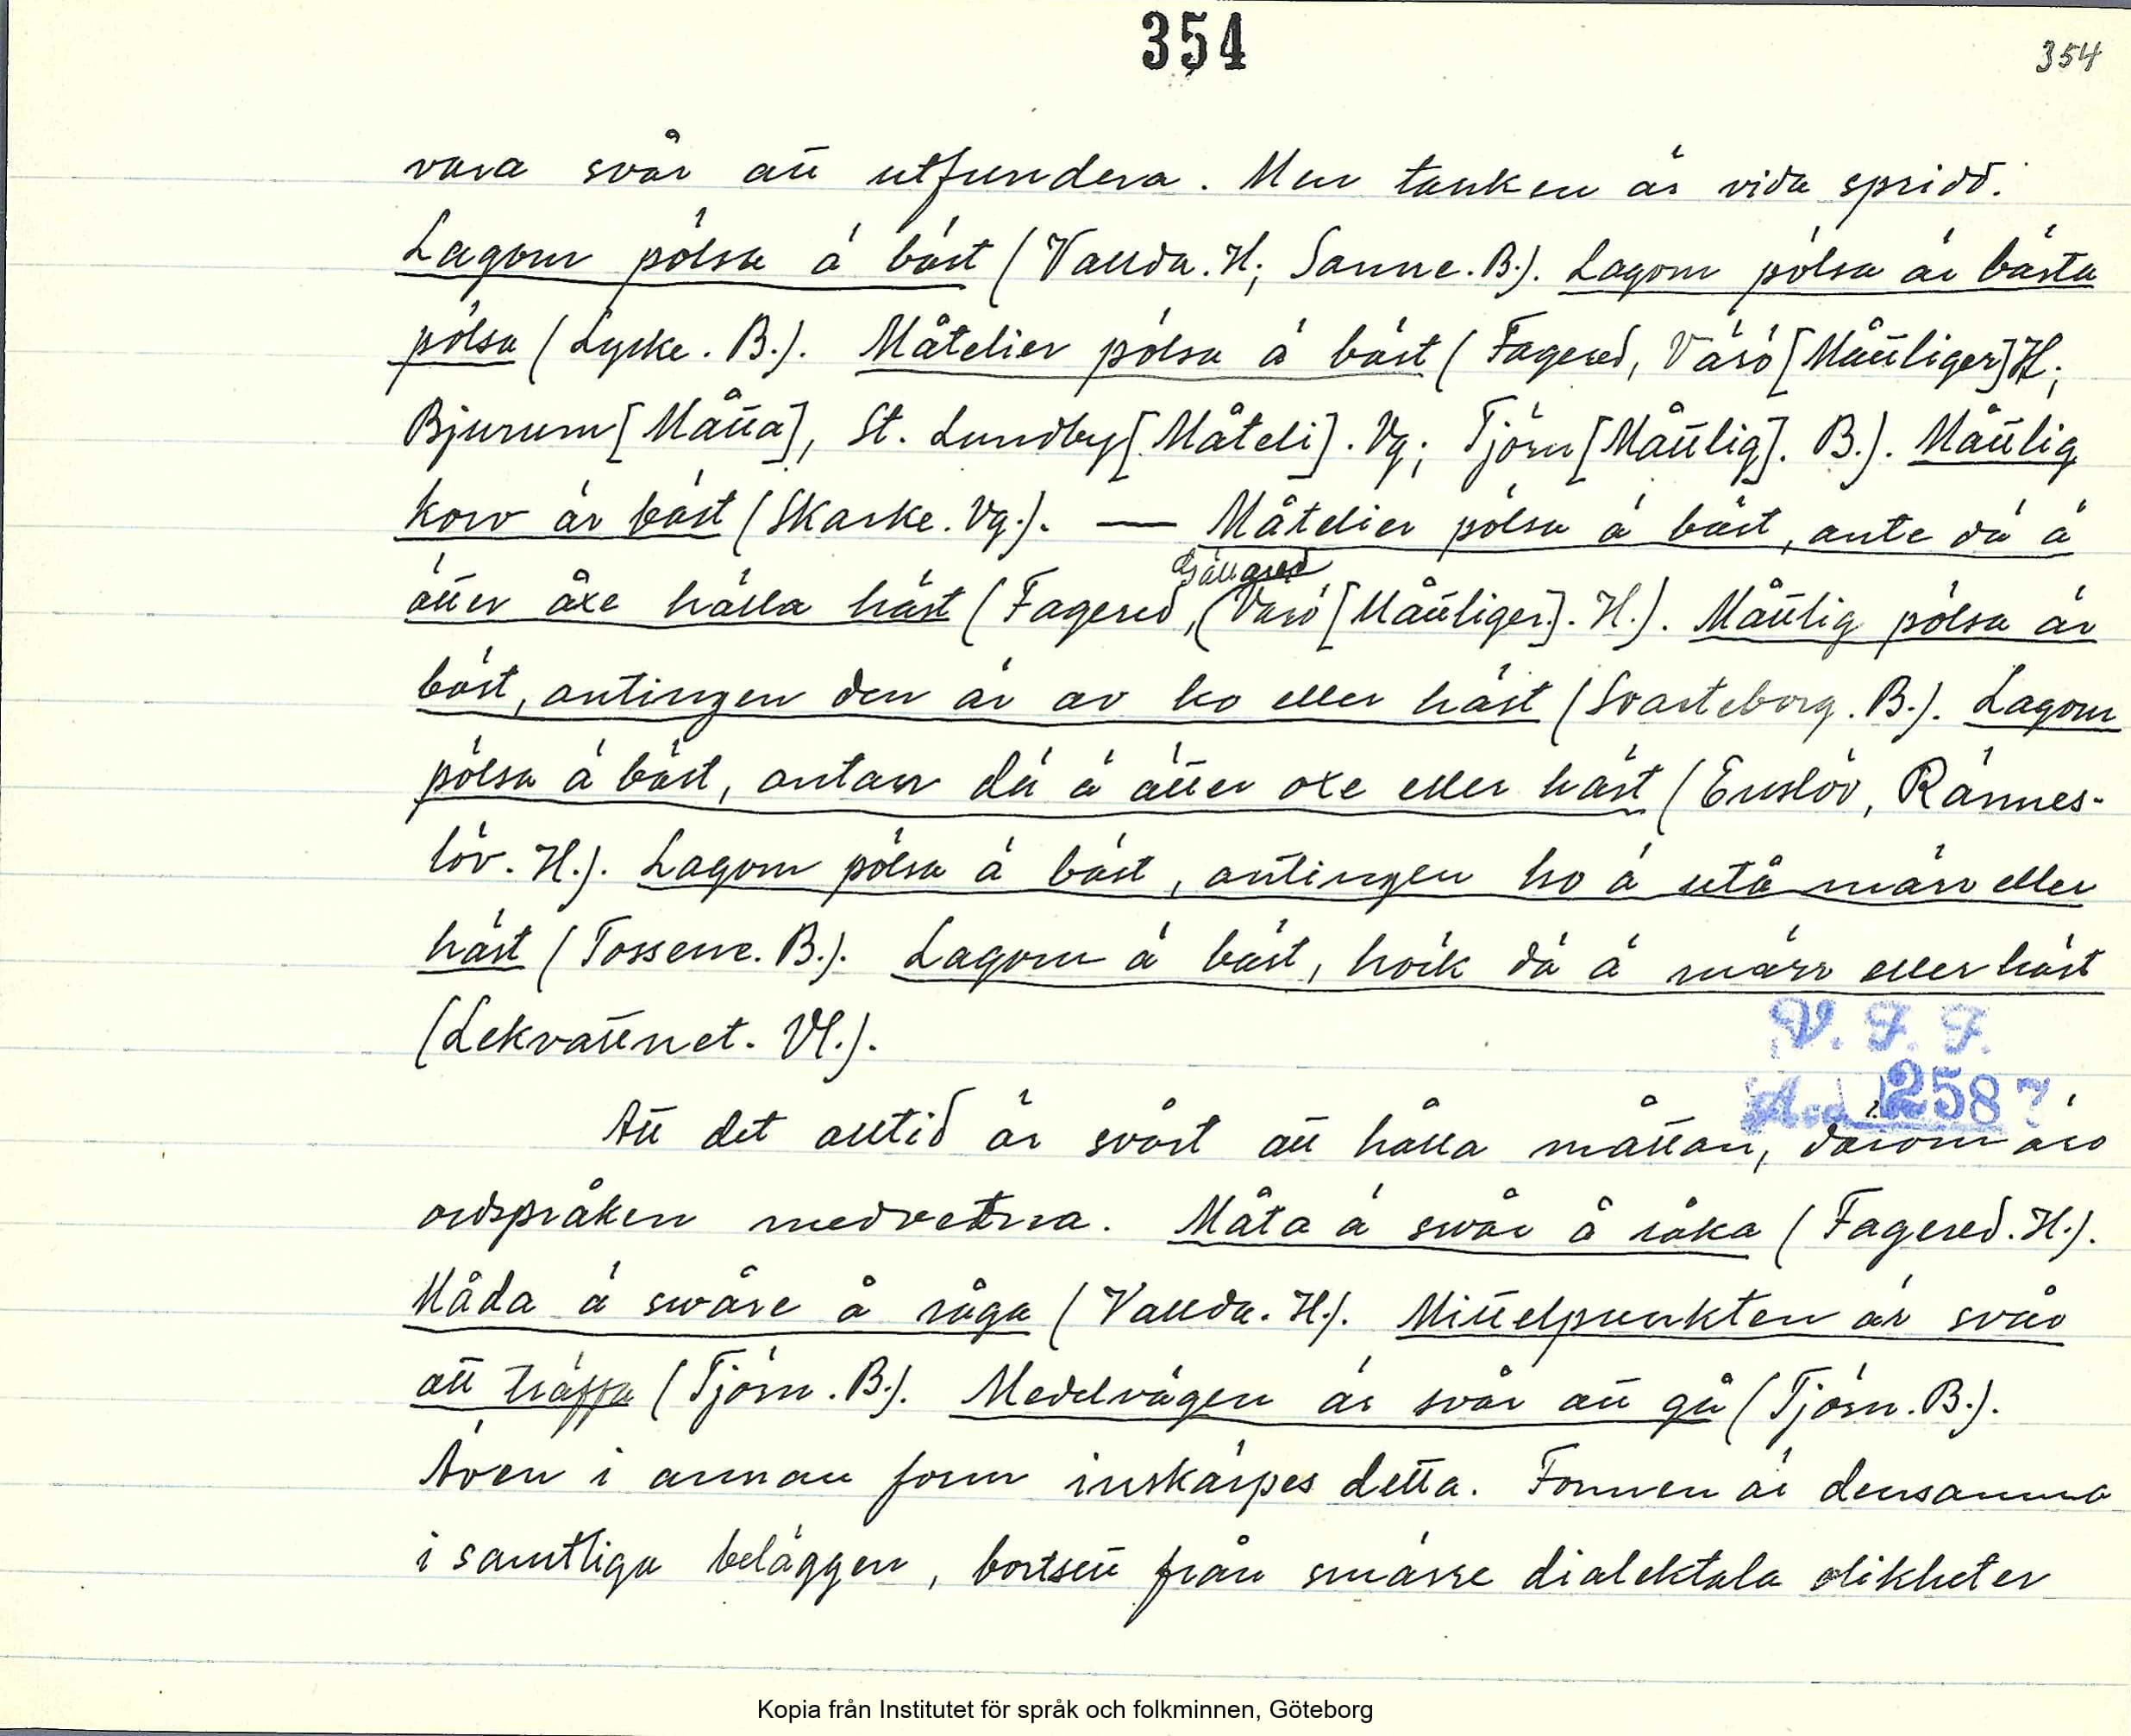 354
354
vara svår att utfundera. Men tanken är vida spridd.
Lagom pölsa ä bäst (Vallda. H; Sanne. B.). Lagom pölsa är bästa
pölsa (Lycke. B.). Måtelier pölsa ä bäst (Fagered, Värö [Måttliger] H;
Bjurum [Måtta], St. Lundby [Måteli]. Vg; Tjörn [Måttlig]. B.). Måttlig
korv är bäst (Skarke. Vg.). — Måtelier pölsa ä bäst, ante dä ä
Gällared
ätter åxe hälla häst (Fagered, (Värö [Måttliger]. H.). Måttlig pölsa är
bäst, antingen den är av ko eller häst (Svarteborg. B.). Lagom
pölsa ä bäst, antan dä ä ätter oxe eller häst (Enslöv, Rännes-
löv. H.). Lagom pölsa ä bäst, antingen ho ä utå märr eller
häst (Tossene. B.). Lagom ä bäst, höck dä ä märr eller häst
(Lekvattnet. Vl.).
V. F. F.
258?
Att det alltid är svårt att hålla måttan, därom äro
ordspråken medvetna. Måta ä swår å råka (Fagered. H.).
Måda ä swåre å råga (Vallda. H.). Mittelpunkten är svår
att träffa (Tjörn. B.). Medelvägen är svår att gå (Tjörn. B.).
Även i annan form inskärpes detta. Formen är densamma
i samtliga beläggen, bortsett från smärre dialektala olikheter
Kopia från Institutet för språk och folkminnen, Göteborg